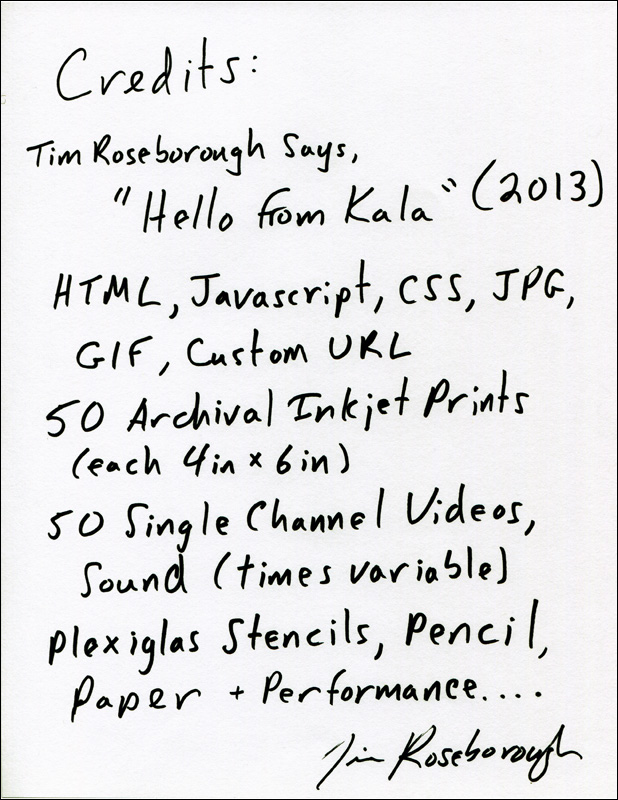 Credits:
Tim Roseborough Says,
"Hello from Kala" (2013)
HTML, Javascript, CSS, JPG,
GIF, Custom URL
50 Archival Inkjet Prints
(each 4in x 6in)
50 Single Channel Videos,
Sound (times variable)
Plexiglas Stencils, Pencil,
Paper + Performance....
Tim Roseborough